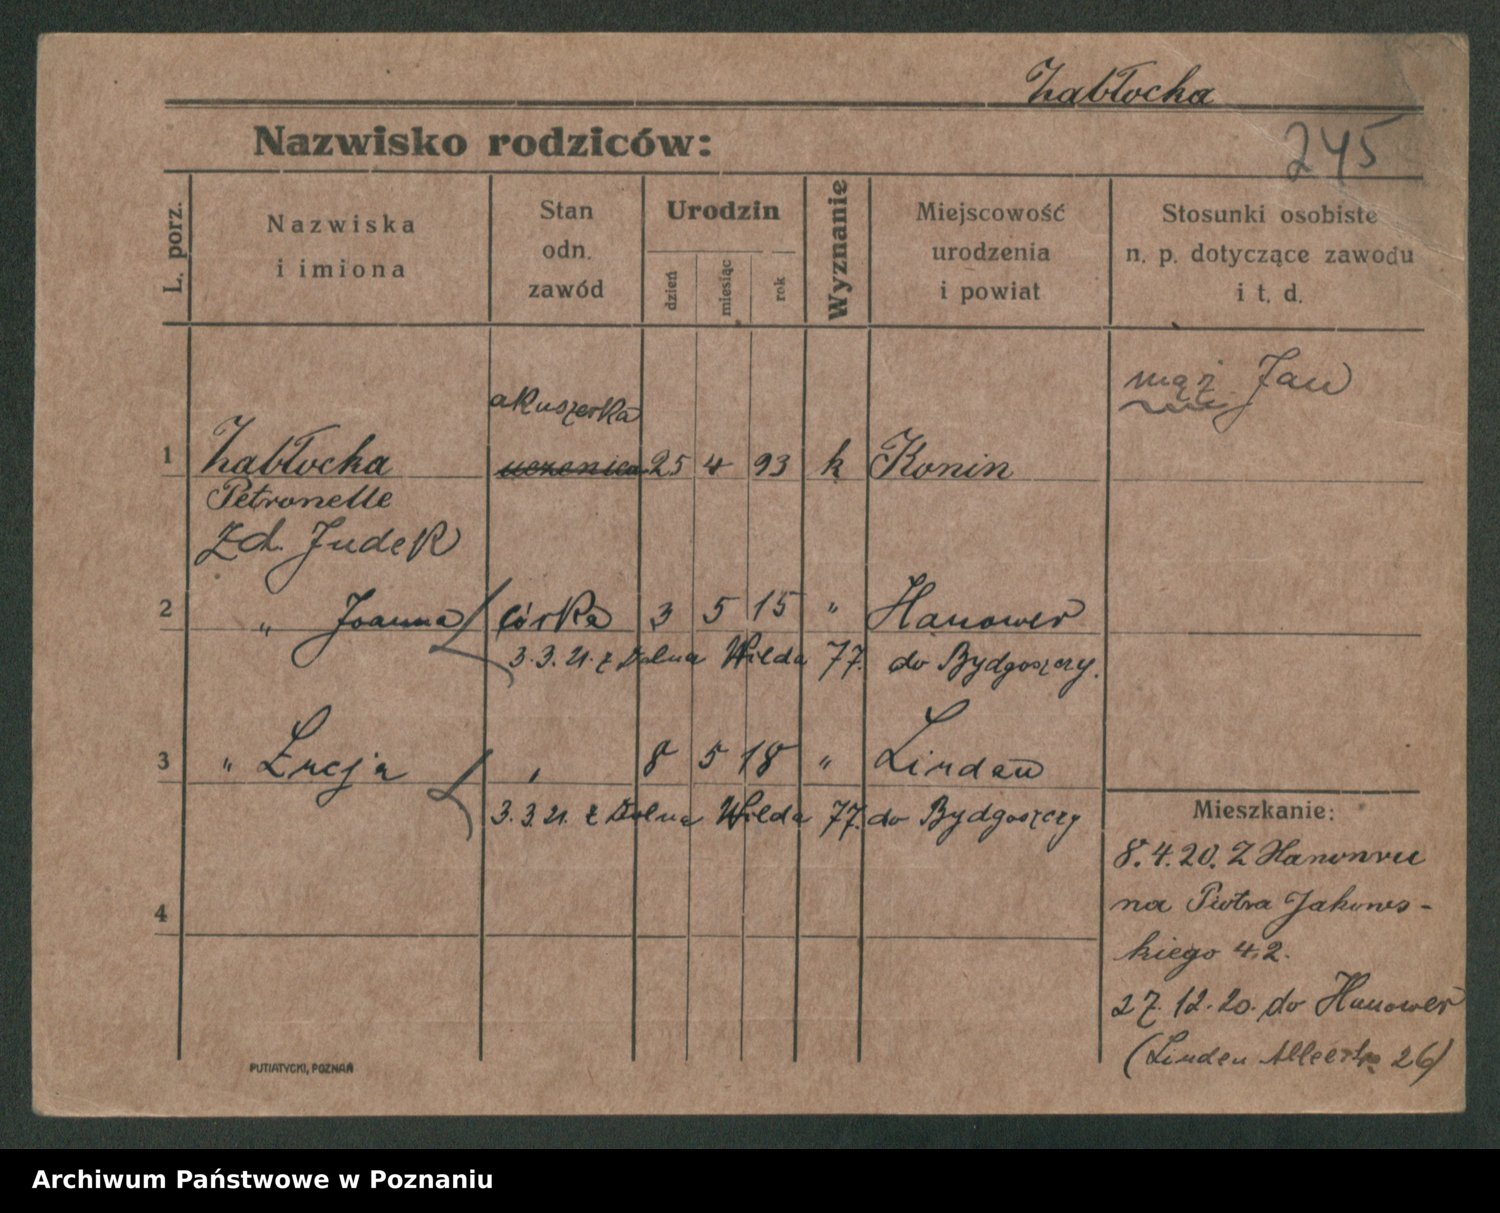 Zabłocka
Nazwisko rodziców:
245
L. porz.
Nazwiska
i imiona
Stan
odn.
zawód
Urodzin
dzień
miesiąc
rok
Wyznanie
Miejscowość
urodzenia
i powiat
Stosunki osobiste
n. p. dotyczące zawodu
i t. d.
mąż Jan
akuszerka
1 Zabłocka uczenica 25 4 93 k Konin
Petronelle
Zd. Judek
2 " Joanna córka 3 5 15 " Hanower
3.3.21. z Dolna Wilda 77. do Bydgoszczy.
3 " Łucja " 8 5 18 " Lindau
3.3.21. z Dolna Wilda 77. do Bydgoszczy
4
Mieszkanie:
8.4.20. Z Hanowru
na Piotra Jakows-
kiego 42.
27.12.20. do Hanower
(Linden Alleestr 26)
PUTIATYCKI, POZNAŃ
Archiwum Państwowe w Poznaniu